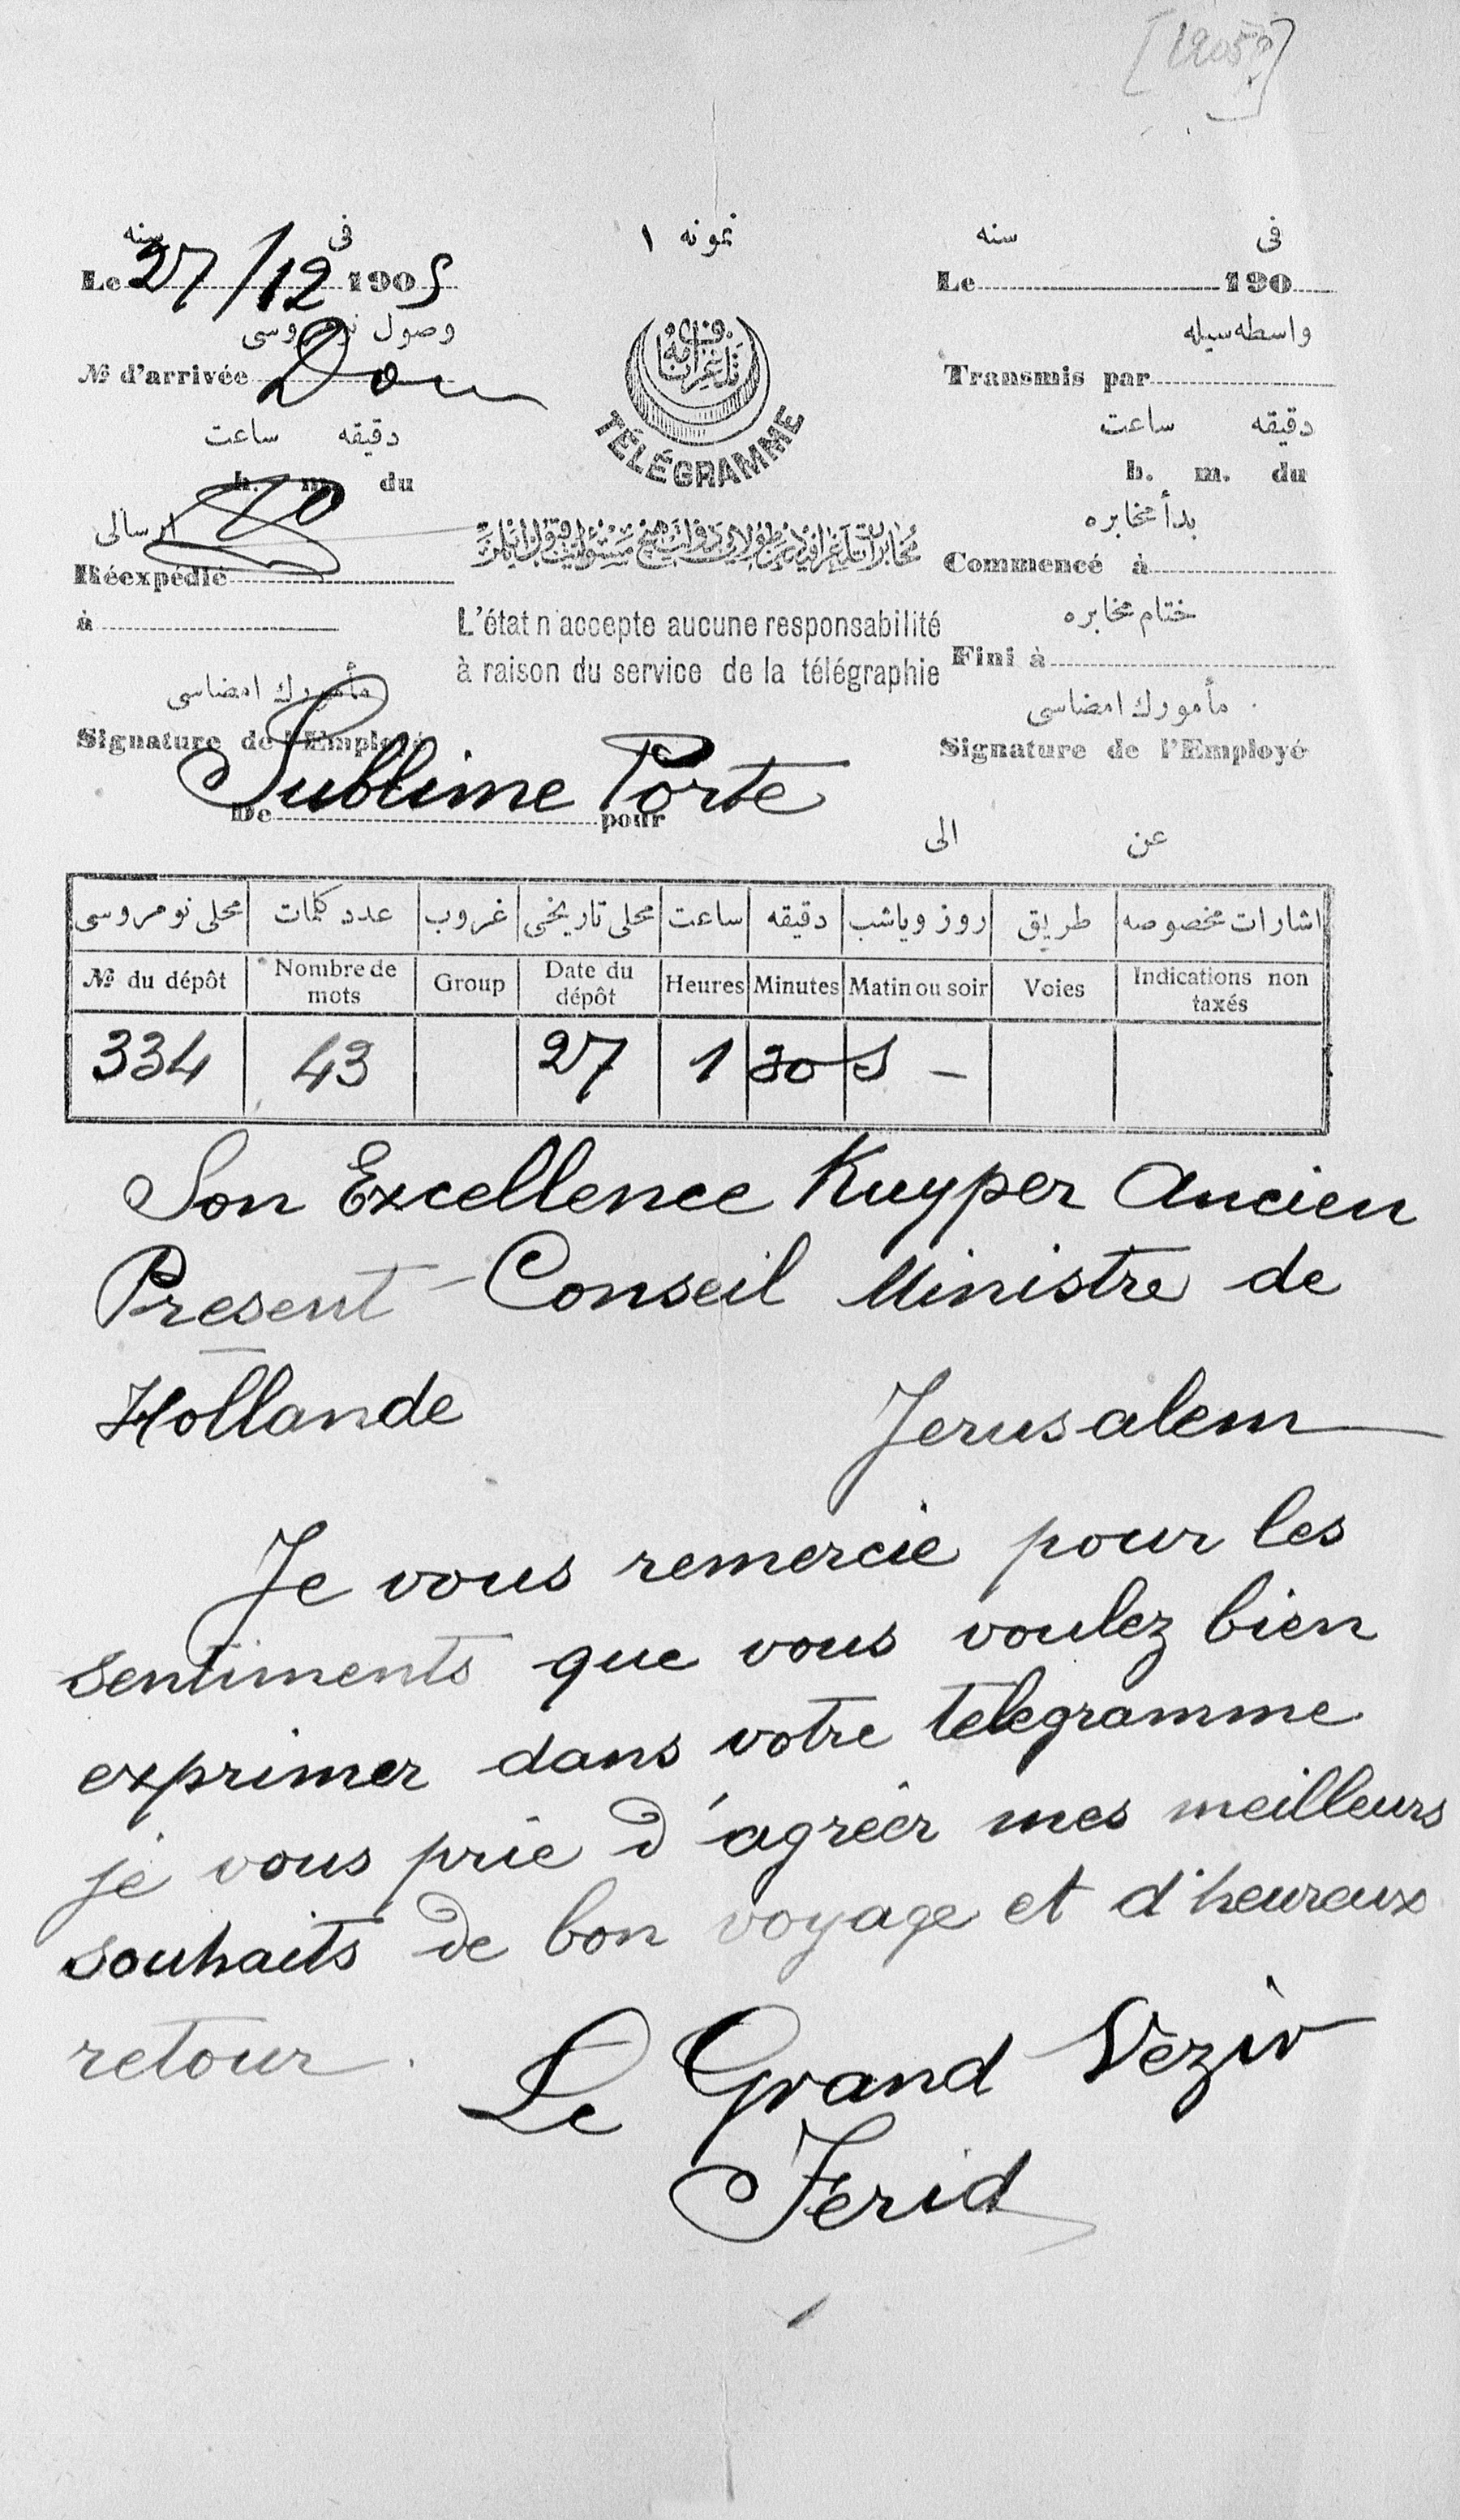 فى سنه
Le 27/12 1905
وصول نومروسى
№ d'arrivée
دقيقه ساعت
h. m. du
ارسالى
Réexpédié
à
مأمورك امضاسى
Signature de l'Employé
نمونه ١
TÉLÉGRAMME
L'état n'accepte aucune responsabilité
à raison du service de la télégraphie
فى سنه
Le 190
واسطه سيله
Transmis par
دقيقه ساعت
h. m. du
بدأ مخابره
Commencé à
ختام مخابره
Fini à
مأمورك امضاسى
Signature de l'Employé
Sublime Porte
De pour
عن الى
محلى نومروسى عدد كلمات غروب محلى تاريخى ساعت دقيقه روز وياشب طريق اشارات مخصوصه
№ du dépôt Nombre de mots Group Date du dépôt Heures Minutes Matin ou soir Voies Indications non taxés
334 43 27 1 30 S –
Son Excellence Kuyper Ancien
Present - Conseil Ministre de
Hollande Jerusalem
Je vous remercie pour les
sentiments que vous voulez bien
exprimer dans votre telegramme
je vous prie d'agréer mes meilleurs
souhaits de bon voyage et d'heureux
retour.
Le Grand Vezir
Ferid